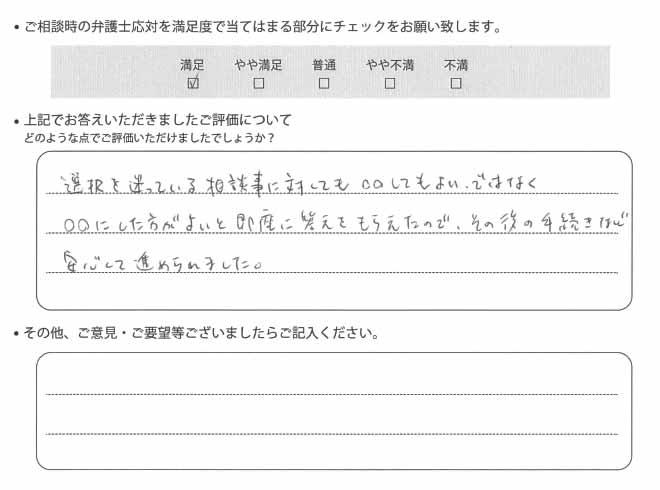 • ご相談時の弁護士応対を満足度で当てはまる部分にチェックをお願い致します。
満足 やや満足 普通 やや不満 不満
☑ □ □ □ □
• 上記でお答えいただきましたご評価について
どのような点でご評価いただけましたでしょうか？
選択を迷っている相談事に対しても〇〇してもよい、ではなく
〇〇にした方がよいと即座に答えをもらえたので、その後の手続きなど
安心して進められました。
• その他、ご意見・ご要望等ございましたらご記入ください。